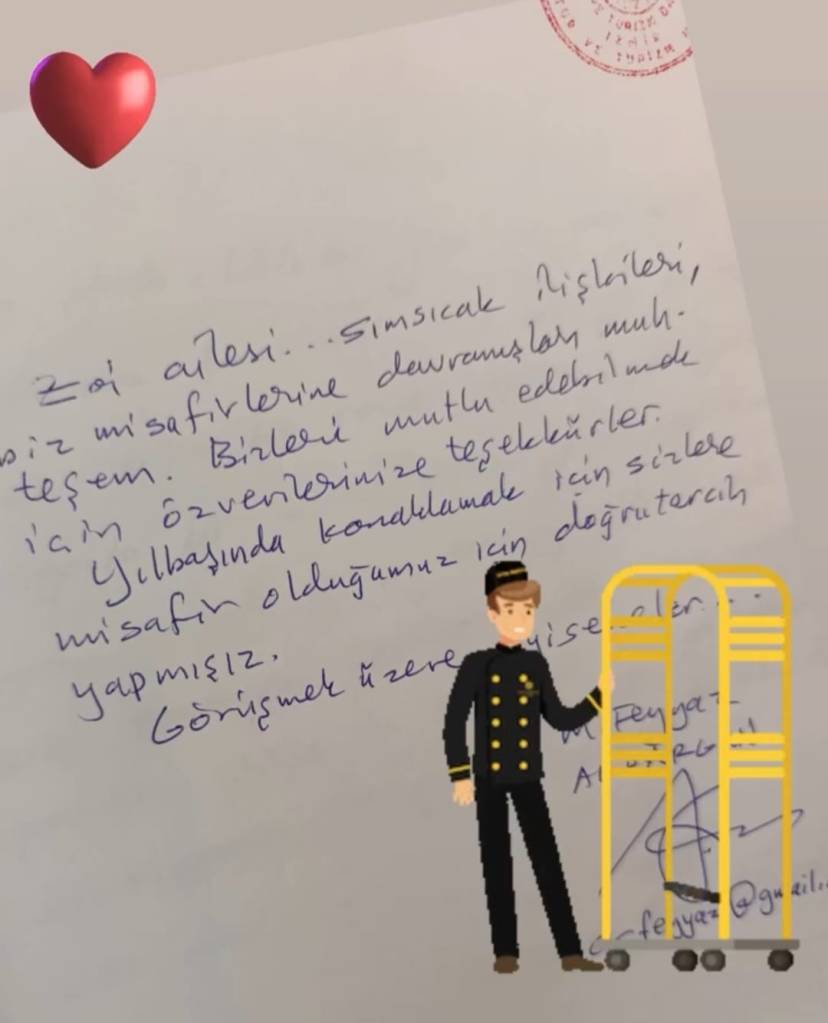 Zoi ailesi... sımsıcak ilişkileri,
biz misafirlerine davranışları muh-
teşem. Bizleri mutlu edebilmek
için özverilerinize teşekkürler.
Yılbaşında konaklamak için sizlere
misafir olduğumuz için doğru tercih
yapmışız.
Görüşmek üzere iyi seneler...
M Feyyaz